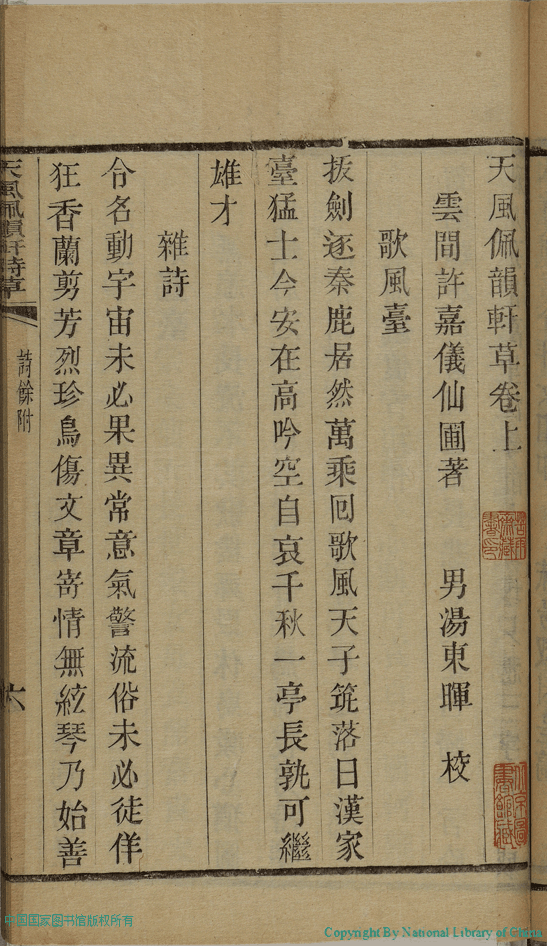 天風佩韻軒草卷上
雲間許嘉儀仙圃著 男湯東暉 校
歌風臺
拔劍逐秦鹿居然萬乘回歌風天子筑落日漢家
臺猛士今安在高吟空自哀千秋一亭長孰可繼
雄才
雜詩
令名動宇宙未必果異常意氣警流俗未必徒佯
狂香蘭剪芳烈珍鳥傷文章寄情無絃琴乃始善
天風佩韻軒詩草
詩餘附
六
中国国家图书馆版权所有
Copyright By National Library of China